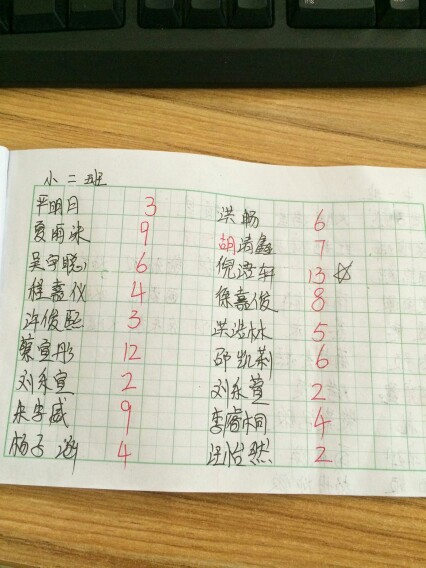 小二班
平明日 3
夏雨沫 9
吴宇聪 6
程嘉仪 4
许俊熙 3
蔡宣彤 12
刘东宣 2
朱宇威 9
杨子 4
洪畅 6
胡靖鑫 7
倪浩轩 13 ☆
徐嘉俊 8
洪浩林 5
邵凯莉 6
刘东萱 2
李睿桐 4
怡然 2